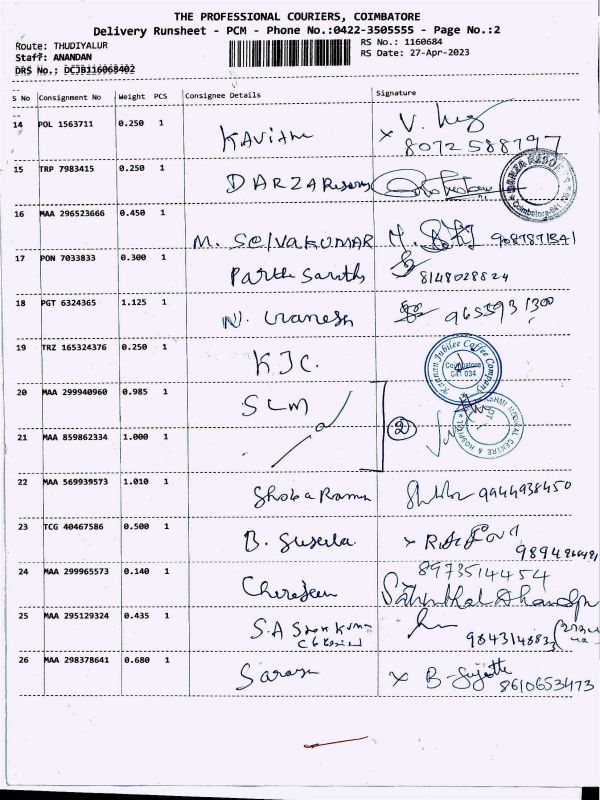 THE PROFESSIONAL COURIERS, COIMBATORE
Delivery Runsheet - PCM - Phone No.:0422-3505555 - Page No.:2
Route: THUDIYALUR
RS No.: 1160684
Staff: ANANDAN
RS Date: 27-Apr-2023
DRS No.: DCJB116068402
S No Consignment No Weight PCS Consignee Details Signature
14 POL 1563711 0.250 1 KAVITHA x V.
8072588797
15 TRP 7983415 0.250 1 DARZA
16 MAA 296523666 0.450 1 M. SELVAKUMAR M.
17 PON 7033833 0.300 1 Partha Sarathy 8148028824
18 PGT 6324365 1.125 1 N. 9655931300
19 TRZ 165324376 0.250 1 KJC. Kannan Jubilee Coffee Company
Coimbatore
641 034
20 MAA 299940960 0.985 1 SLM
21 MAA 859862334 1.000 1 2 MEDICAL CENTRE & HOSPITAL
22 MAA 569939573 1.010 1 Shoba Rama 9944938450
23 TCG 40467586 0.500 1 B. Suseela x
24 MAA 299965573 0.140 1 8973514454
25 MAA 295129324 0.435 1 S.A
26 MAA 298378641 0.680 1 x B-
8610653473